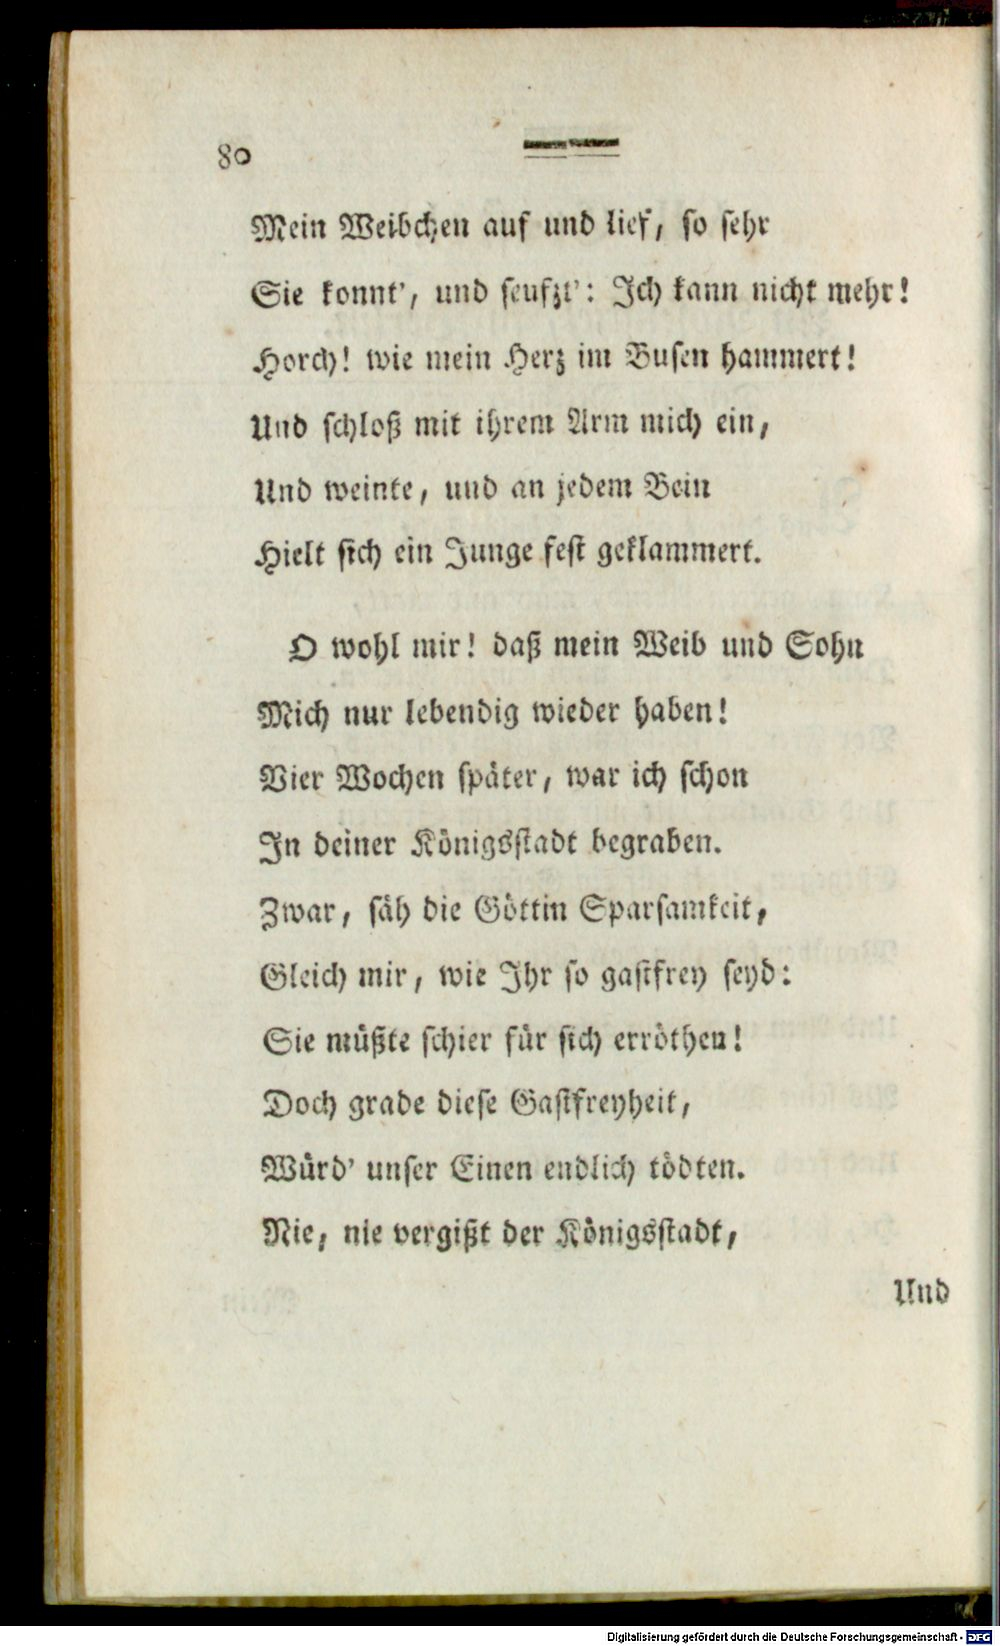 80
Mein Weibchen auf und lief, so sehr
Sie konnt', und seufzt': Ich kann nicht mehr!
Horch! wie mein Herz im Busen hammert!
Und schloß mit ihrem Arm mich ein,
Und weinte, und an jedem Bein
Hielt sich ein Junge fest geklammert.
O wohl mir! daß mein Weib und Sohn
Mich nur lebendig wieder haben!
Vier Wochen später, war ich schon
In deiner Königsstadt begraben.
Zwar, säh die Göttin Sparsamkeit,
Gleich mir, wie Ihr so gastfrey seyd:
Sie müßte schier für sich erröthen!
Doch grade diese Gastfreyheit,
Würd' unser Einen endlich tödten.
Nie, nie vergißt der Königsstadt,
Und
Digitalisierung gefördert durch die Deutsche Forschungsgemeinschaft - DFG